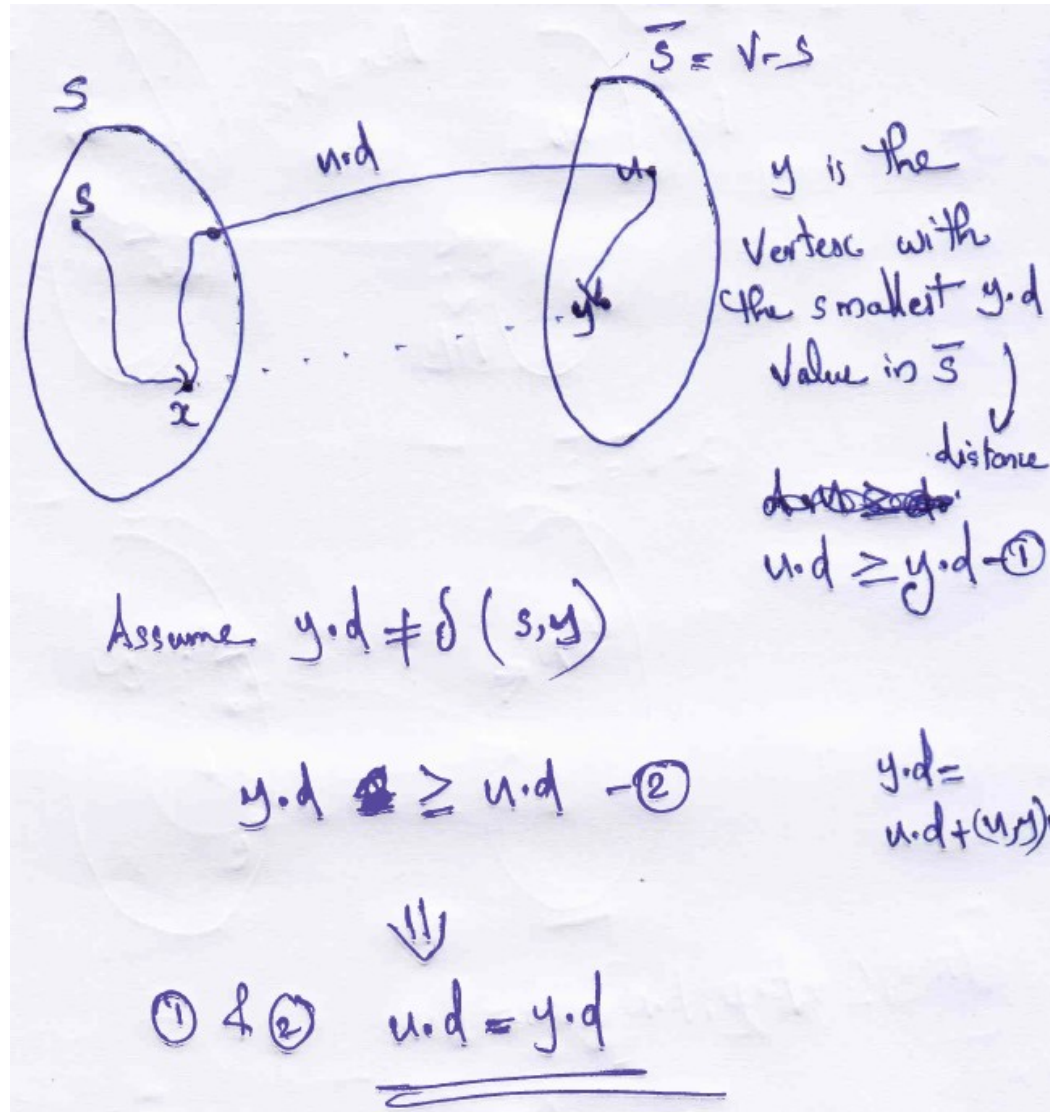 S̄ = V-S
S
u.d
s
u
x
y
y is the
Vertex with
the smallest y.d
Value in S̄
distance
u.d ≥ y.d -①
Assume y.d ≠ δ (s,y)
y.d ≥ u.d -②
y.d =
u.d+(u,y)
⇓
① & ② u.d = y.d